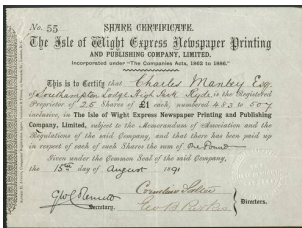 No. 55 SHARE CERTIFICATE.
The Isle of Wight Express Newspaper Printing
AND PUBLISHING COMPANY, LIMITED,
Incorporated under "The Companies Acts, 1862 to 1886."
This is to Certify that Charles Mankey Esq.
of Southampton Lodge, High Park Ryde is the Registered
Proprietor of 25 Shares of £1 each, numbered 483 to 507
inclusive, in The Isle of Wight Express Newspaper Printing and Publishing
Company, Limited, subject to the Memorandum of Association and the
Regulations of the said Company, and that there has been paid up
in respect of each of such Shares the sum of One Pound
Given under the Common Seal of the said Company,
the 15th day of August 1891
Secretary.
Directors.